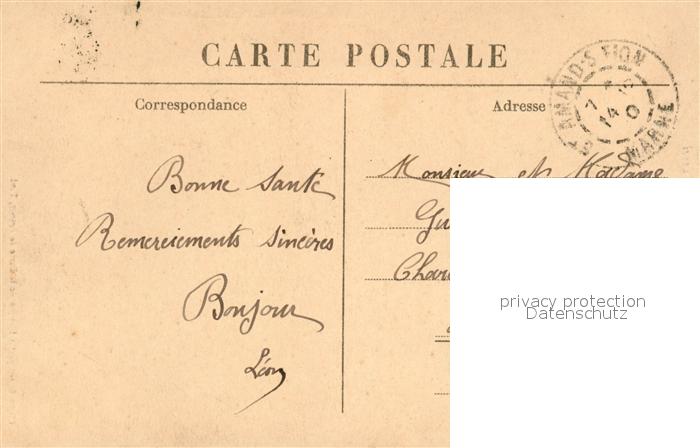 CARTE POSTALE
Correspondance
Adresse
ST AMAND-S-FION
MARNE
Bonne Santé
Remerciements sincères
Bonjour
Léon
Monsieur et Madame
privacy protection
Datenschutz